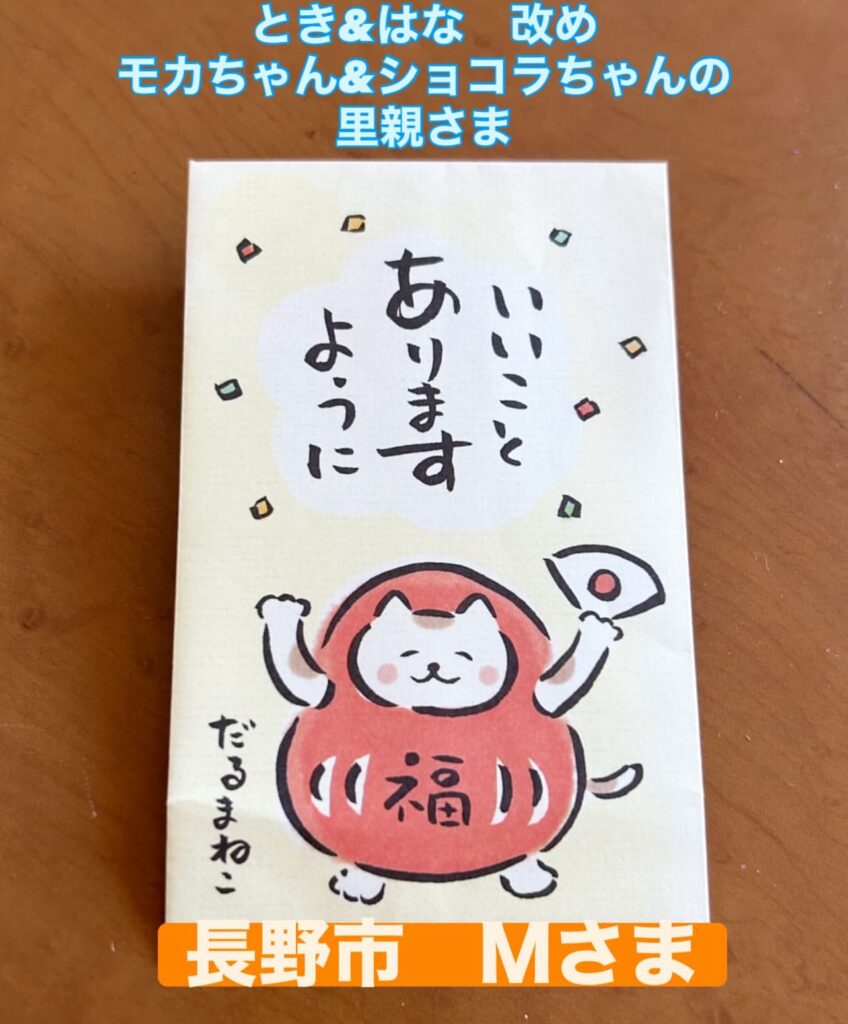 とき&はな　改め
モカちゃん&ショコラちゃんの
里親さま
いいこと
あります
ように
福
だるまねこ
長野市　Mさま